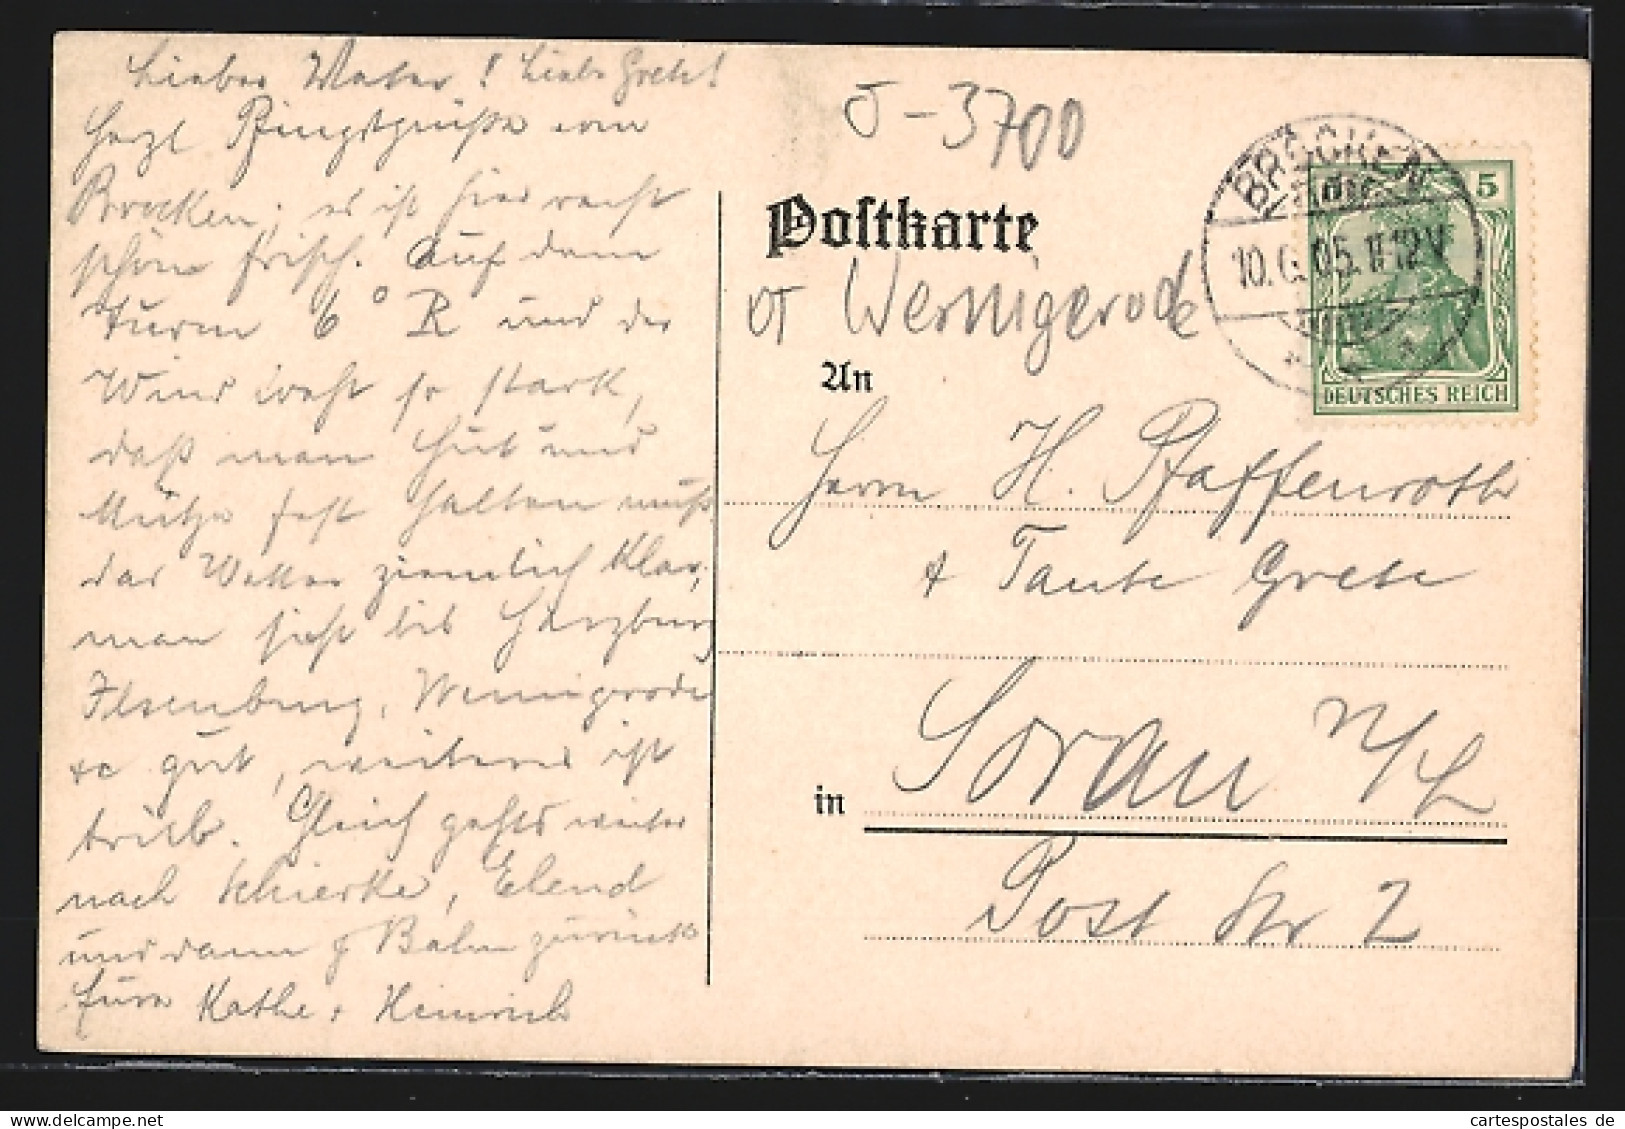 Lieber Vater! Liebe Grete!
Herzl Pfingstgrüße vom
Brocken; es ist hier recht
schön frisch. Auf dem
Turm 6° R und der
Wind weht so stark,
daß man Hut und
Mütze fest halten muß.
das Wetter ziemlich klar,
man sieht bis Harzburg
Ilsenburg, Wernigerode
gut, weiter ist
trüb. Gleich gehts weiter
nach Schierke, Elend
und dann p Bahn zurück
Eure Kathe + Heinrich
J-3700
Postkarte
OT Wernigerode
BROCKEN
10.6.05.11-12V
5
DEUTSCHES REICH
An
Herrn H. Pfaffenroth
+ Tante Grete
in Sorau N/L
Post Str 2
cartespostales de